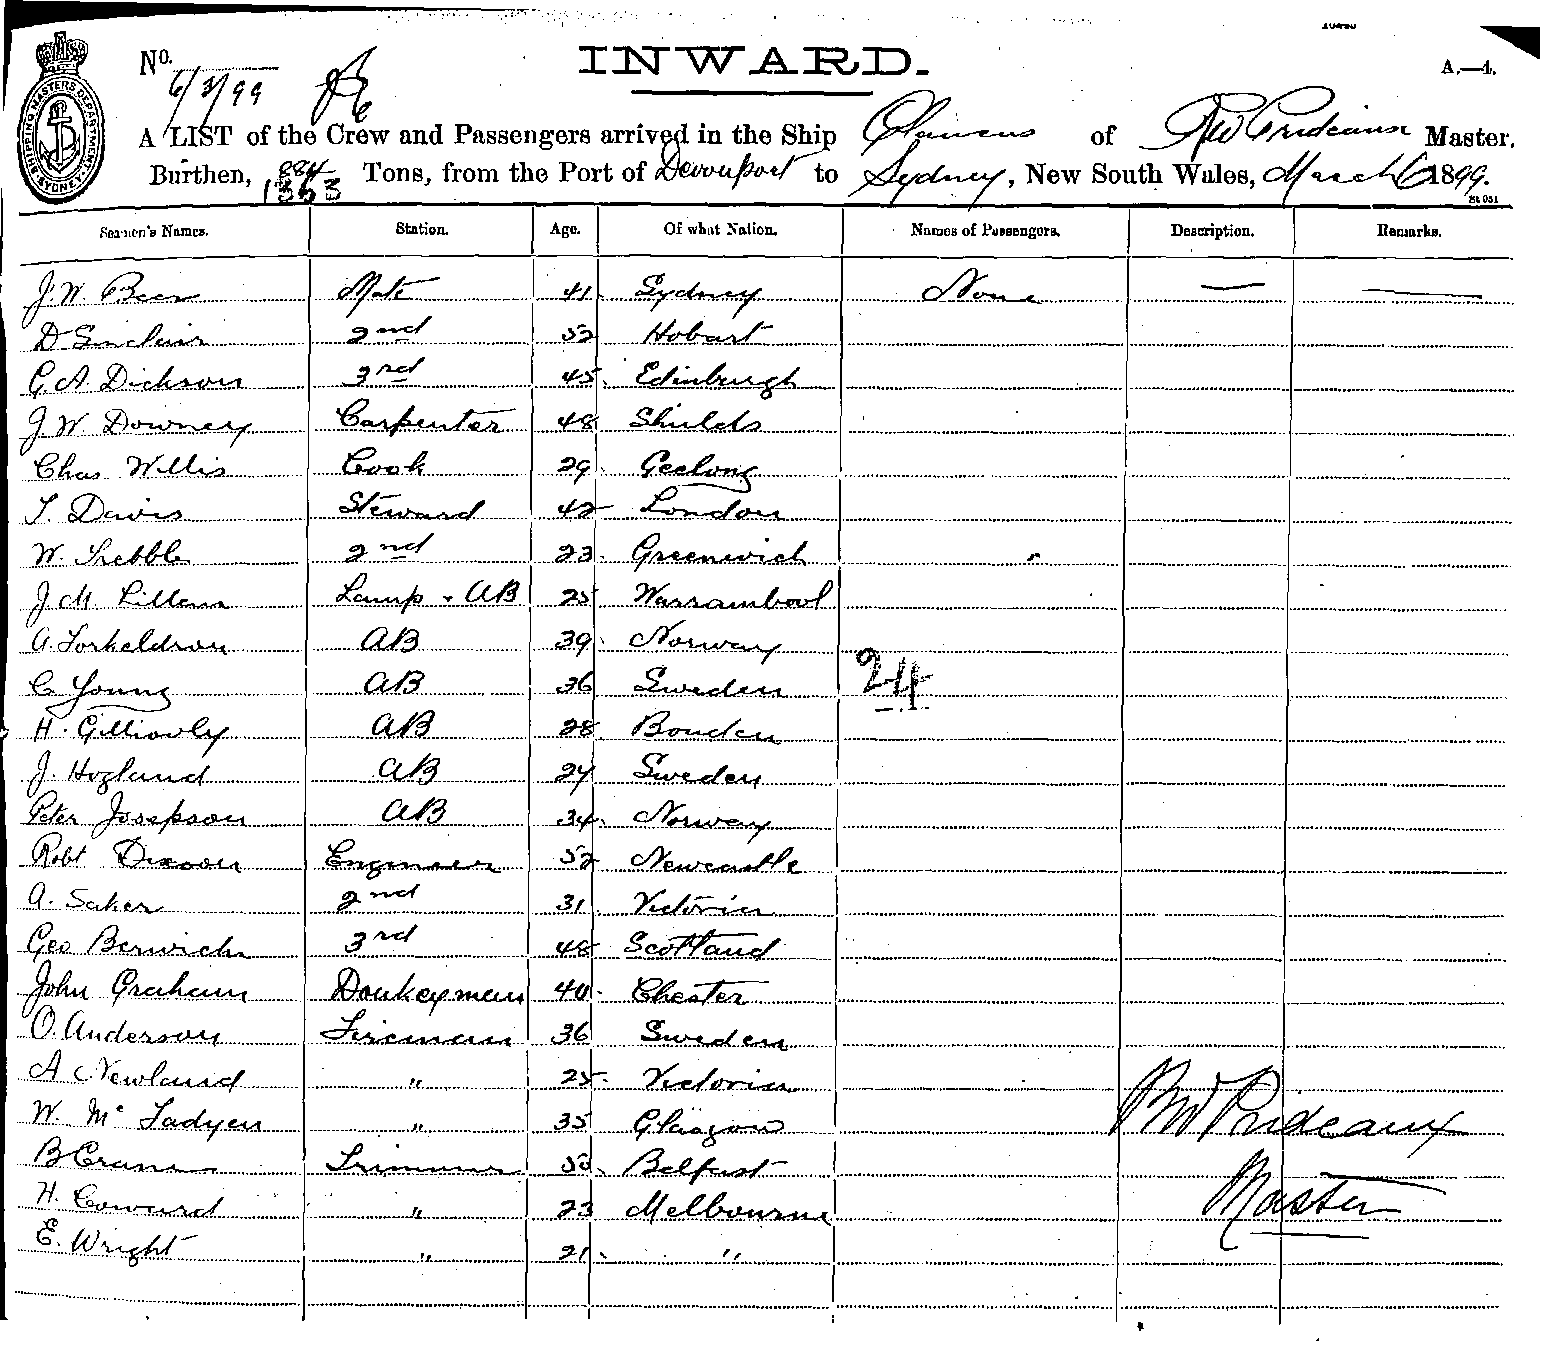 INWARD.
No.
6/3/99
A.—4.
A LIST of the Crew and Passengers arrived in the Ship of RW Prideaux Master.
Burthen, 884 1363 Tons, from the Port of Devonport to Sydney, New South Wales, March 6 1899.
SHIPPING MASTERS DEPARTMENT SYDNEY
Seamen's Names. Station. Age. Of what Nation. Names of Passengers. Description. Remarks.
J. W. Beer Mate 41 Sydney None — —
D Sinclair 2nd 52 Hobart
G. A. Dickson 3rd 45 Edinburgh
J. W. Downey Carpenter 48 Shields
Chas Willis Cook 29 Geelong
T. Davis Steward 42 London
W. Trebble 2nd 23 Greenwich
J M Lamp & AB 25 Warrambool
A. Torkeldson AB 39 Norway
C Young AB 36 Sweden
24
H. AB 28
J. Hogland AB 24 Sweden
Peter Josepson AB 34 Norway
Robt Dixon Engineer 52 Newcastle
A. Saker 2nd 31 Victoria
Geo Berwick 3rd 48 Scotland
John Graham Donkeyman 40 Chester
O. Anderson Fireman 36 Sweden
A Newland " 25 Victoria
W. Mc Fadyen " 35 Glasgow
RW Prideaux
B Crane Trimmer 50 Belfast
Master
H. Coward " 23 Melbourne
E. Wright " 21 "